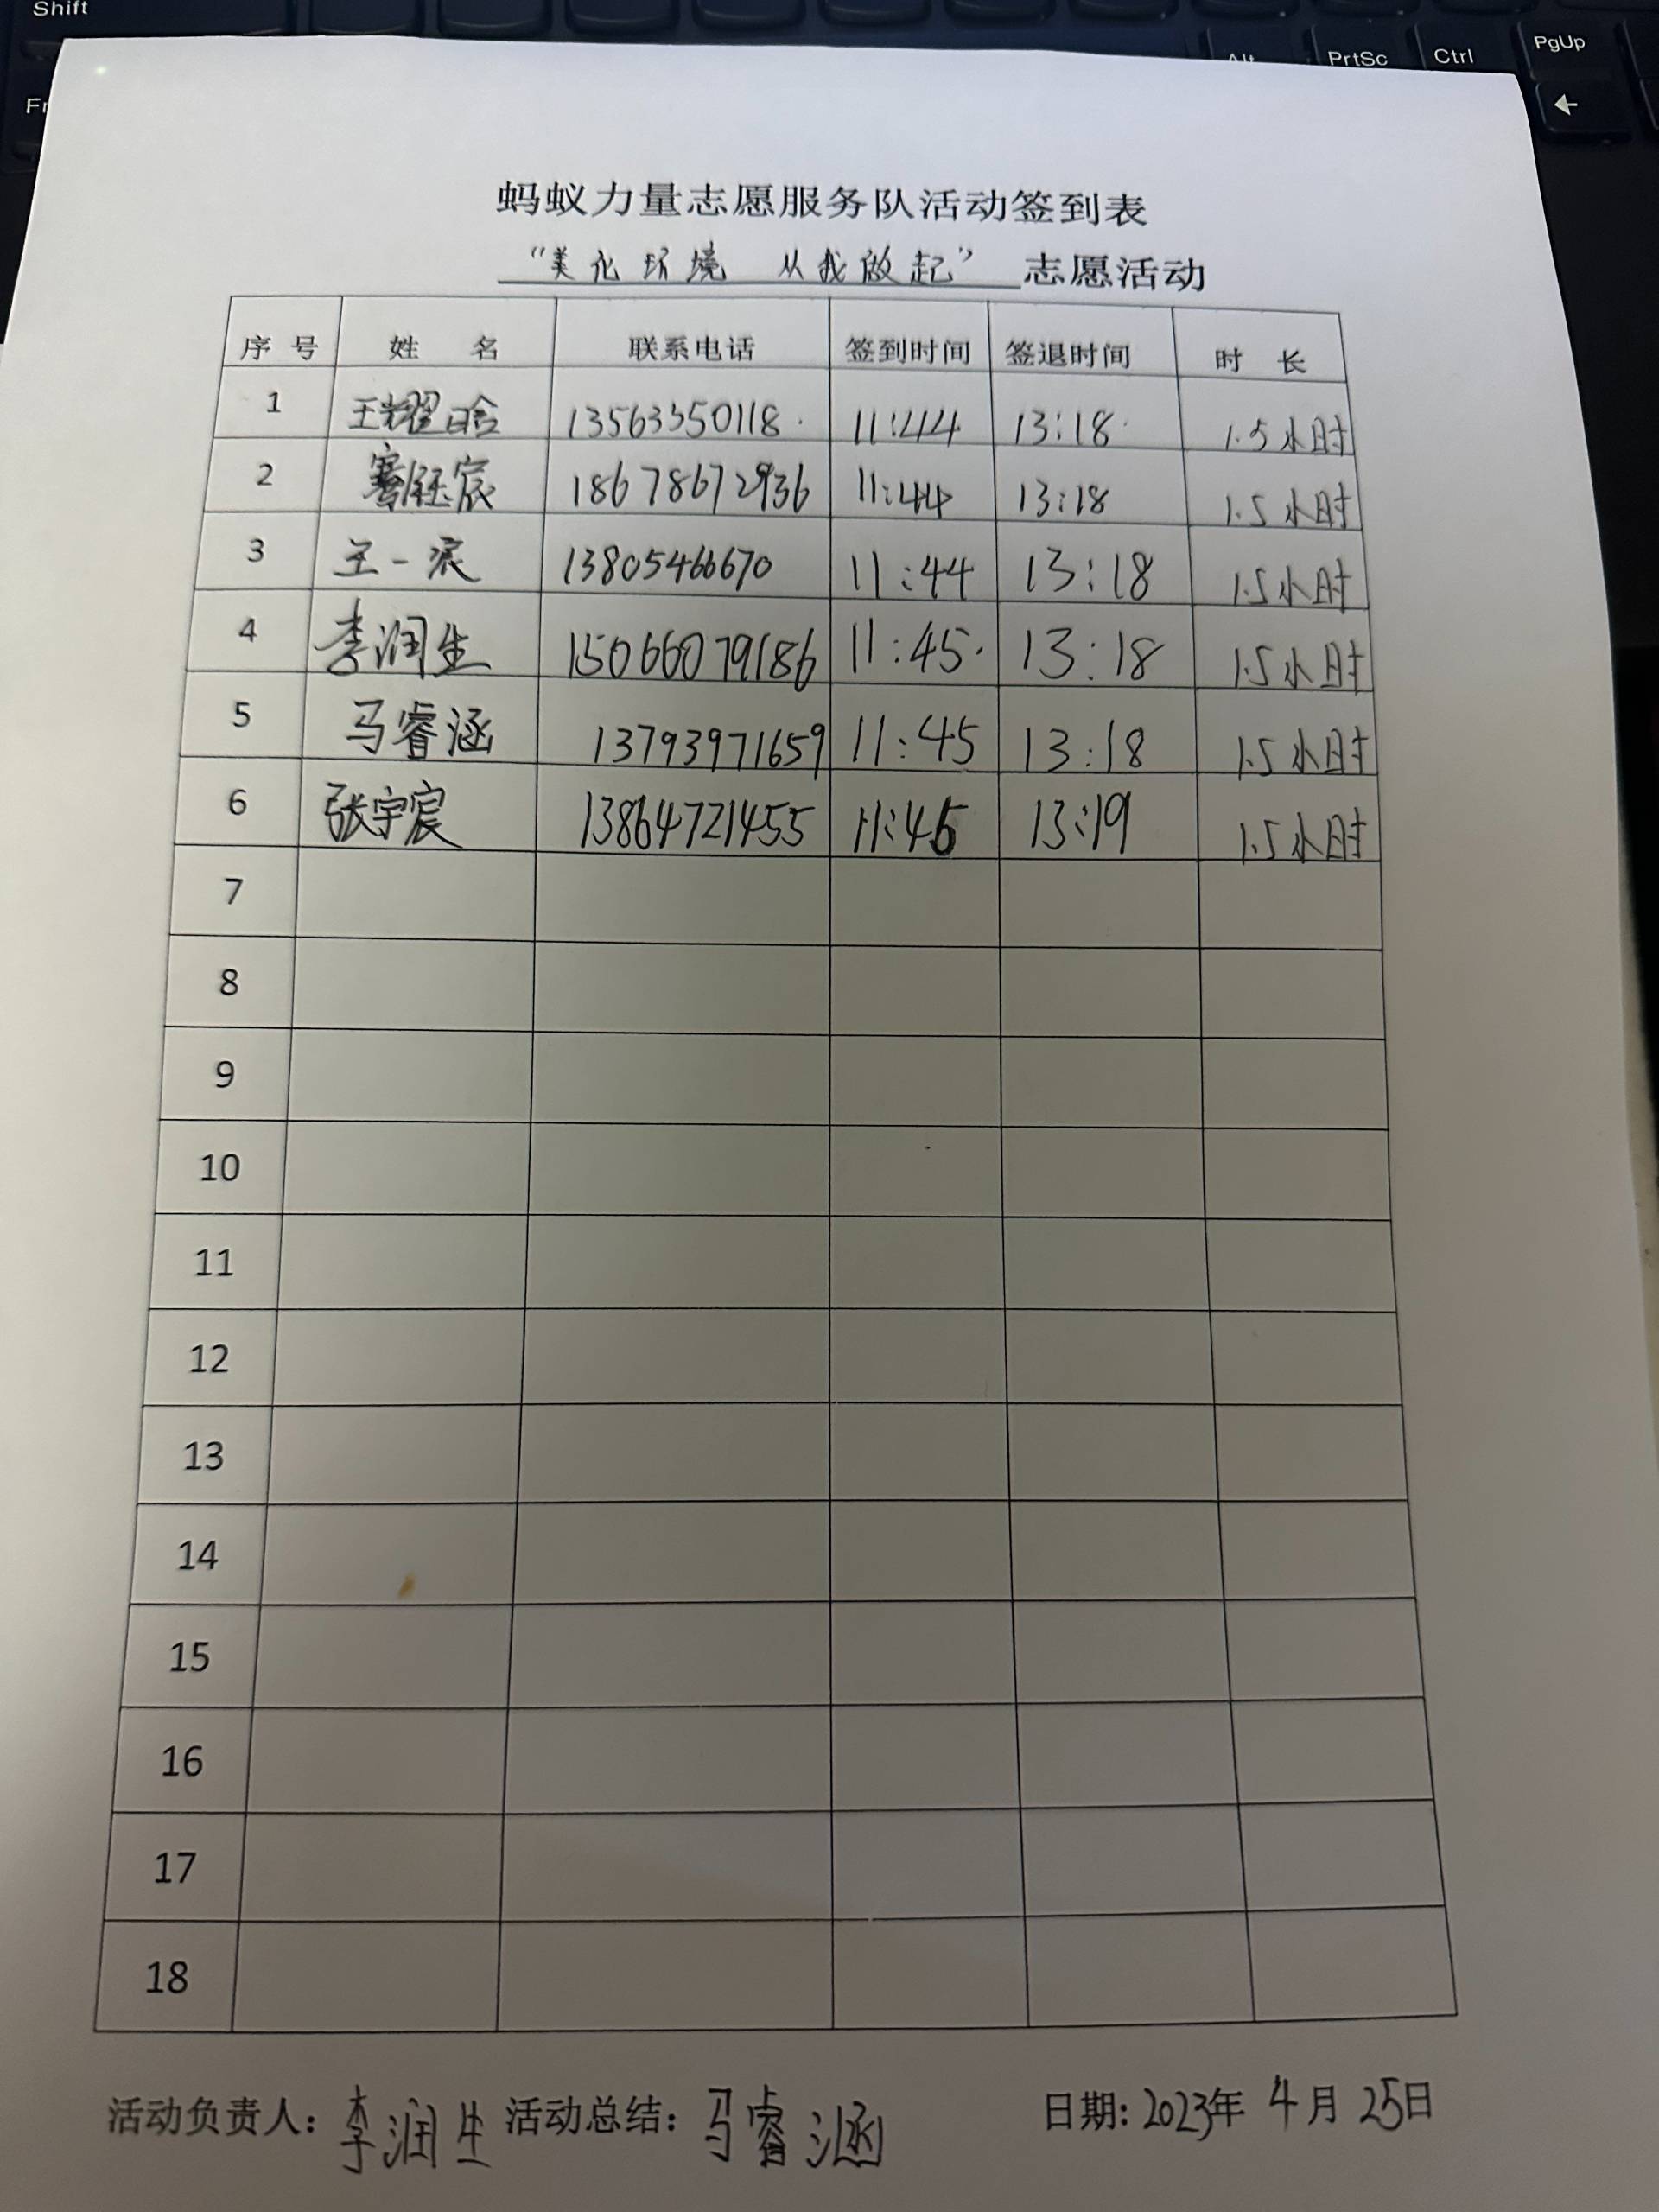 Shift
Alt PrtSc Ctrl PgUp
蚂蚁力量志愿服务队活动签到表
“美化环境 从我做起” 志愿活动
序号 姓名 联系电话 签到时间 签退时间 时长
1 王耀晗 13563350118 11:44 13:18 1.5小时
2 钰宸 18678672936 11:44 13:18 1.5小时
3 王一宸 13805466670 11:44 13:18 1.5小时
4 李润生 15066079186 11:45 13:18 1.5小时
5 马睿涵 13793971659 11:45 13:18 1.5小时
6 张宇宸 13864721455 11:45 13:19 1.5小时
7
8
9
10
11
12
13
14
15
16
17
18
活动负责人：李润生 活动总结：马睿涵 日期：2023年 4月 25日